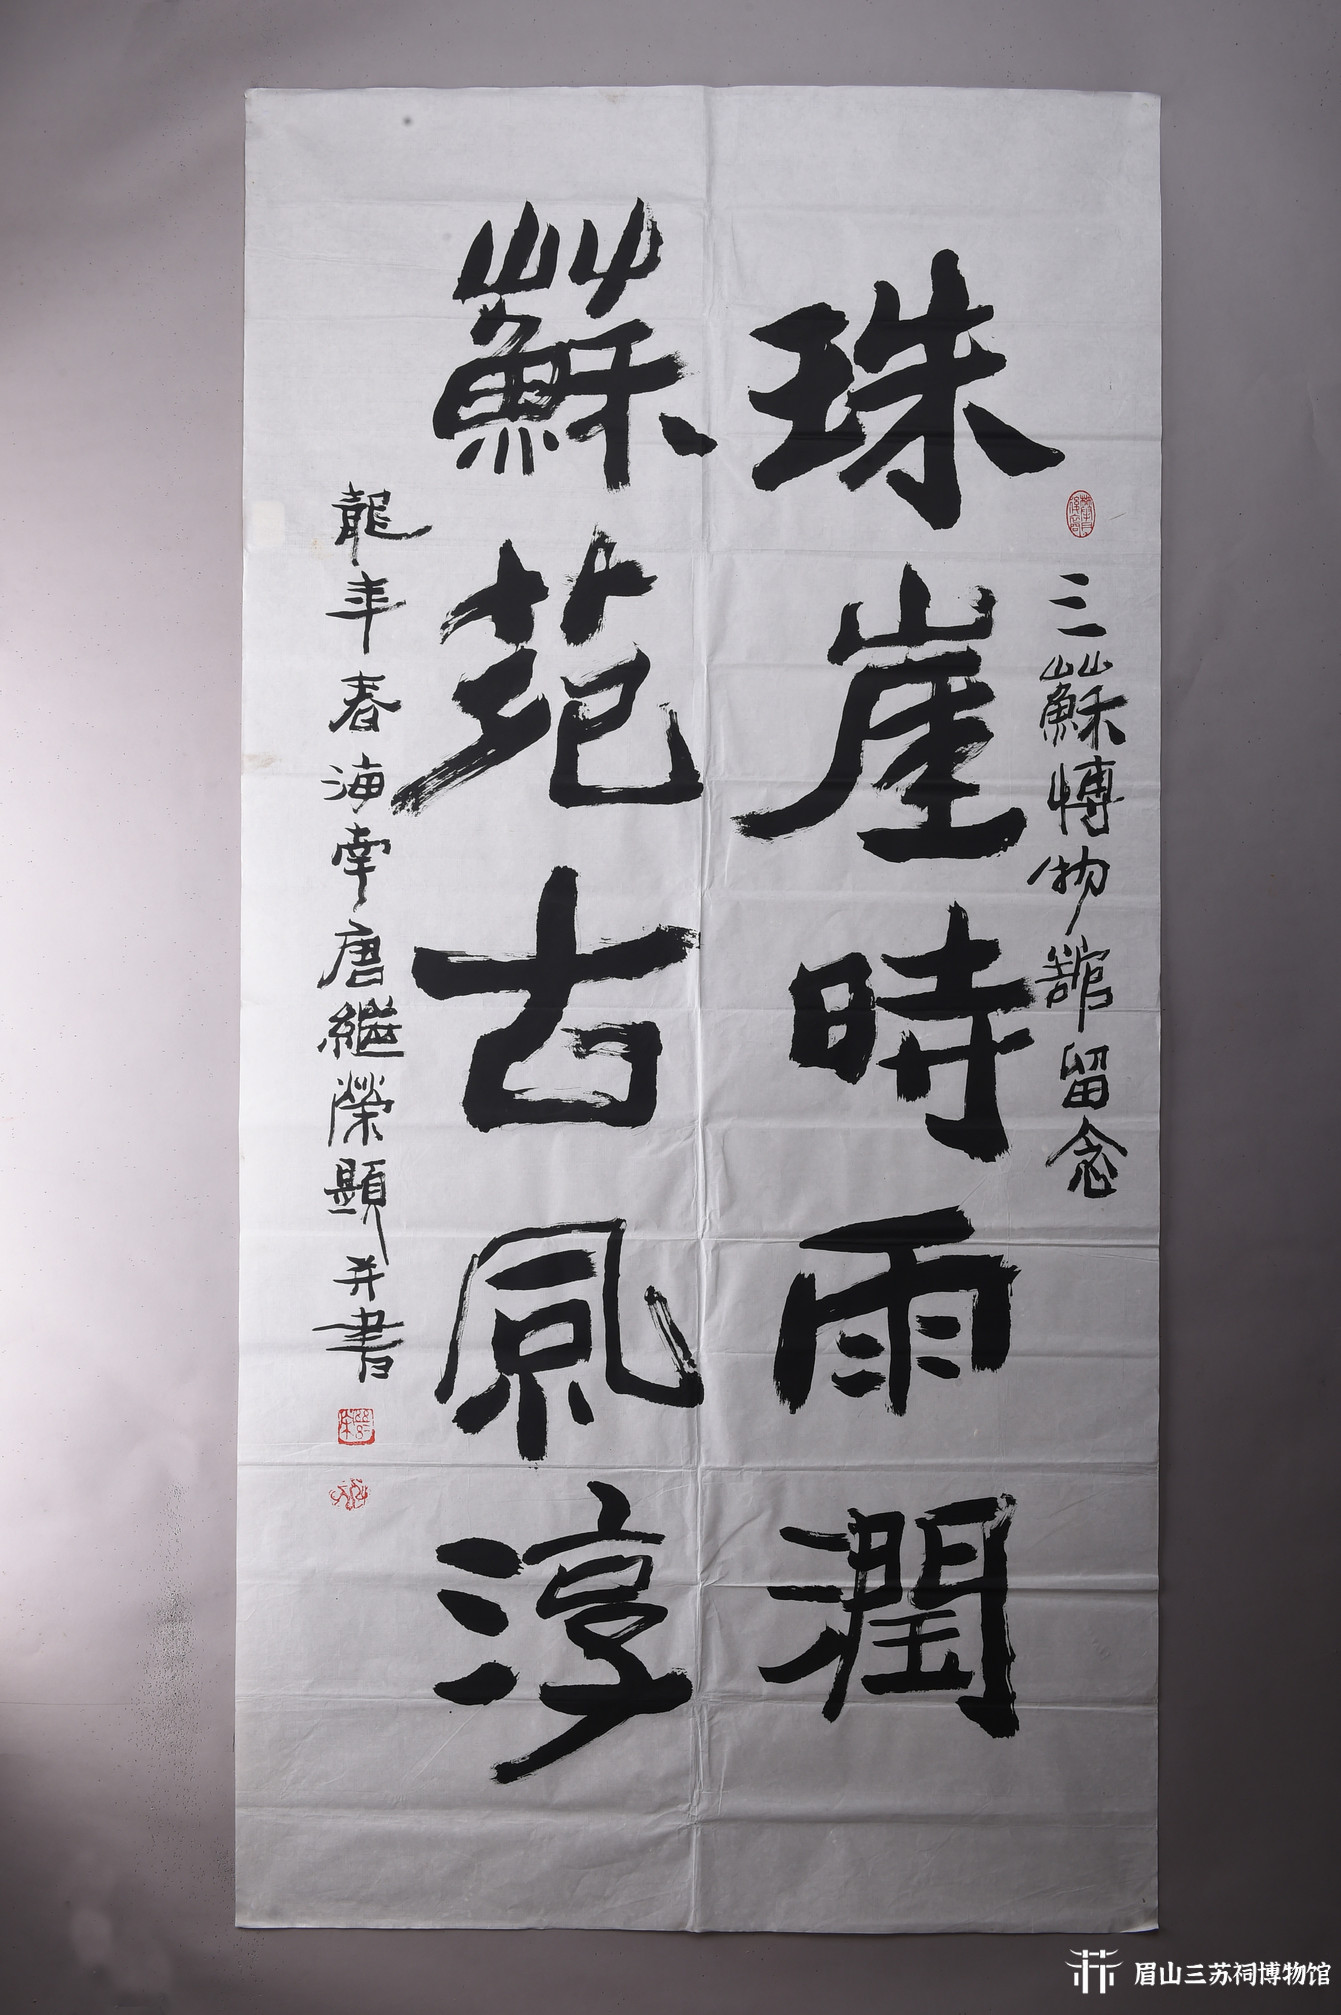 三蘇博物館留念
珠崖時雨潤
蘇苑古風淳
龍年春海南唐繼榮題并書
眉山三苏祠博物馆